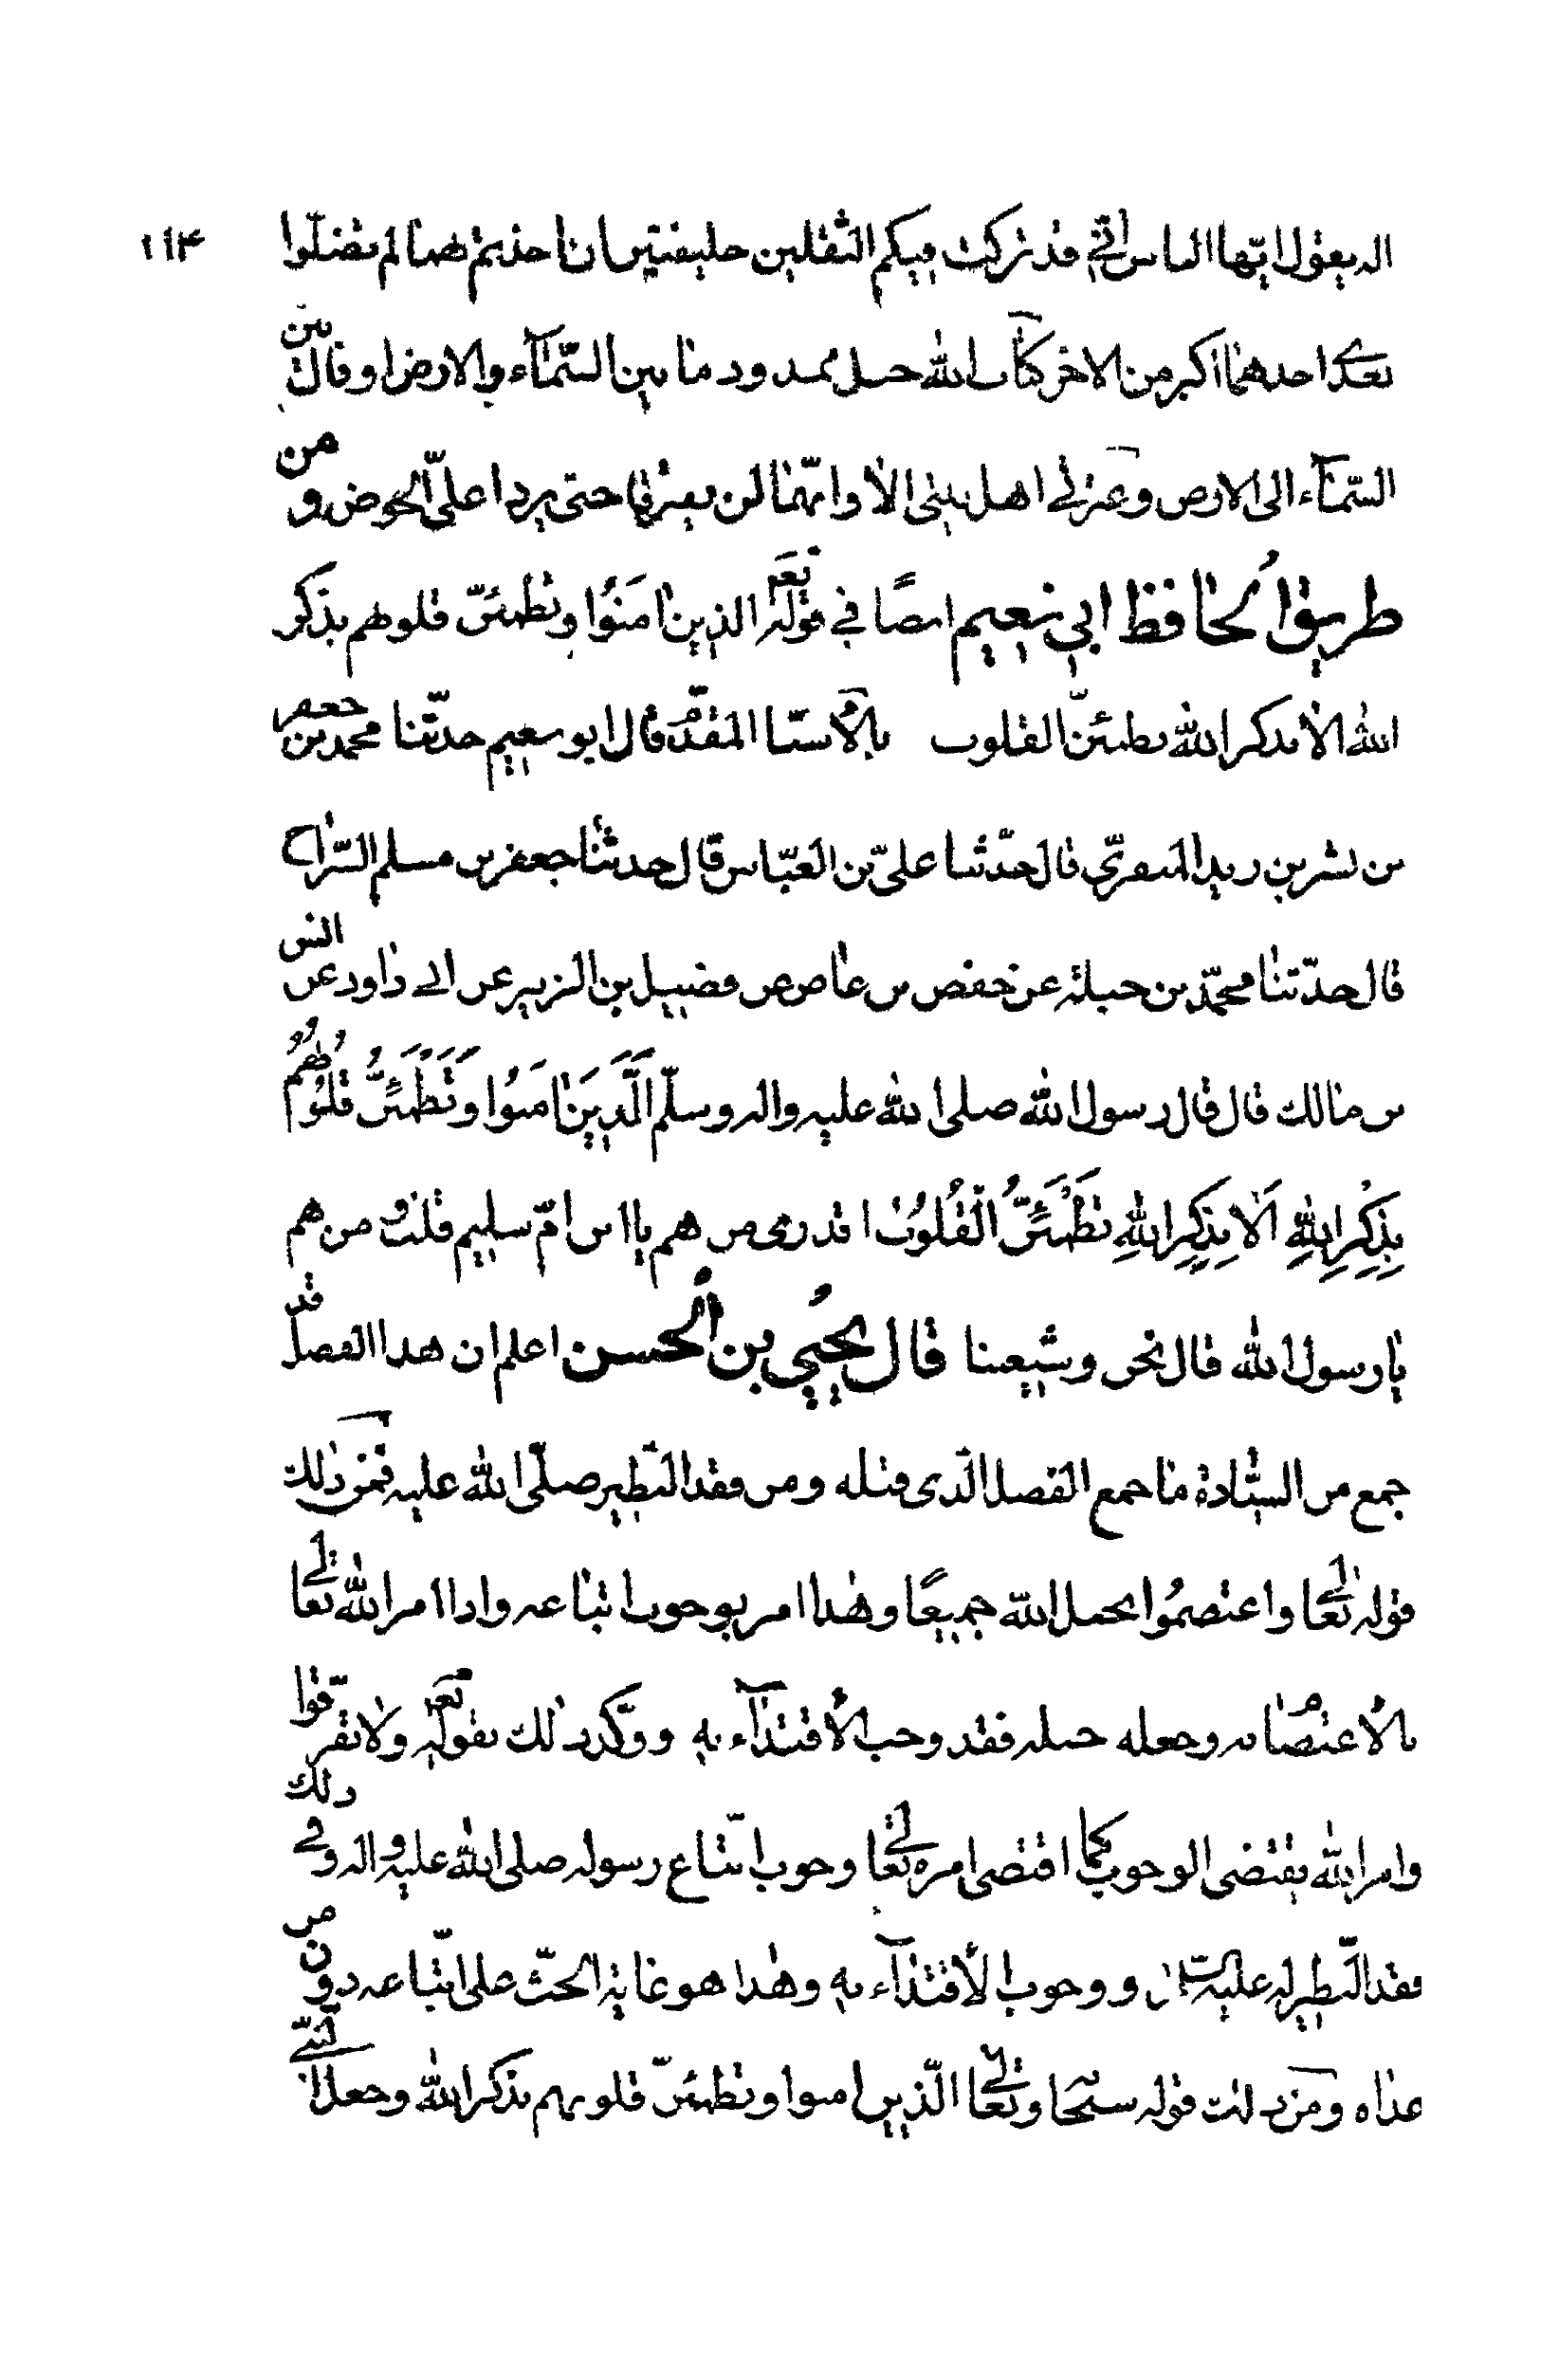 ١١٤
اله يقول ايّها الناس انّي قد تركت فيكم الثقلين خليفتين ان اخذتم بهما لم تضلّوا
بعدي احدهما اكبر من الاخر كتاب الله حبل ممدود ما بين السّمآء والارض او قال بين
السّمآء الى الارض وعترتي اهل بيتى الا وانّهما لن يفترقا حتى يردا علىّ الحوض و من
طريق الحافظ ابي نعيم ايضًا في قوله تع الذين امَنُوا وتطمئنّ قلوبهم بذكر
الله الا بذكر الله تطمئنّ القلوب بالاسناد المقدّم قال ابو نعيم حدّثنا محمد بن جعفر
بن بشر بن المقريّ قال حدّثنا علىّ بن العبّاس قال حدثنا جعفر بن مسلم السّراج
قال حدّثنا محمّد بن حبلة عن حفص بن عاصم عن فضيل بن الزبير عن ابي داود عن انس
بن مالك قال قال رسول الله صلى الله عليه واله وسلّم الَّذِينَ امَنُوا وَتَطْمَئِنُّ قُلُوبُهُمْ
بِذِكْرِ اللهِ اَلا بِذِكْرِ اللهِ تَطْمَئِنُّ الْقُلُوبُ اتدرى من هم يا ابن امّ سليم قلت ومن هم
يا رسول الله قال نحن وشيعتنا قال يحيي بن الحسن اعلم ان هذا الفصل قد
جمع من السيادة ما جمع الفصل الّذى قبله ومن فقد النّظير صلّى الله عليه فمن ذلك
قوله تعالى واعتصمُوا بحبل الله جميعًا وهذا امر بوجوب اتباعه واذا امر الله تعالى
بالاعتصام به وجعله حبله فقد وجب الاقتدآء به ووكّد ذلك بقوله تع ولا تفرّقوا
وامر الله يقتضى الوجوب كما اقتضى امره تعالى وجوب اتّباع رسوله صلى الله عليه واله وفي ذلك
فقد النّظير له عليه السلام و وجوب الاقتدآء به وهذا هو غاية الحثّ على اتّباعه دون من
عداه ومن ذلك قوله سبحانه وتعالى الّذين امنوا وتطمئنّ قلوبهم بذكر الله وجعل النبي